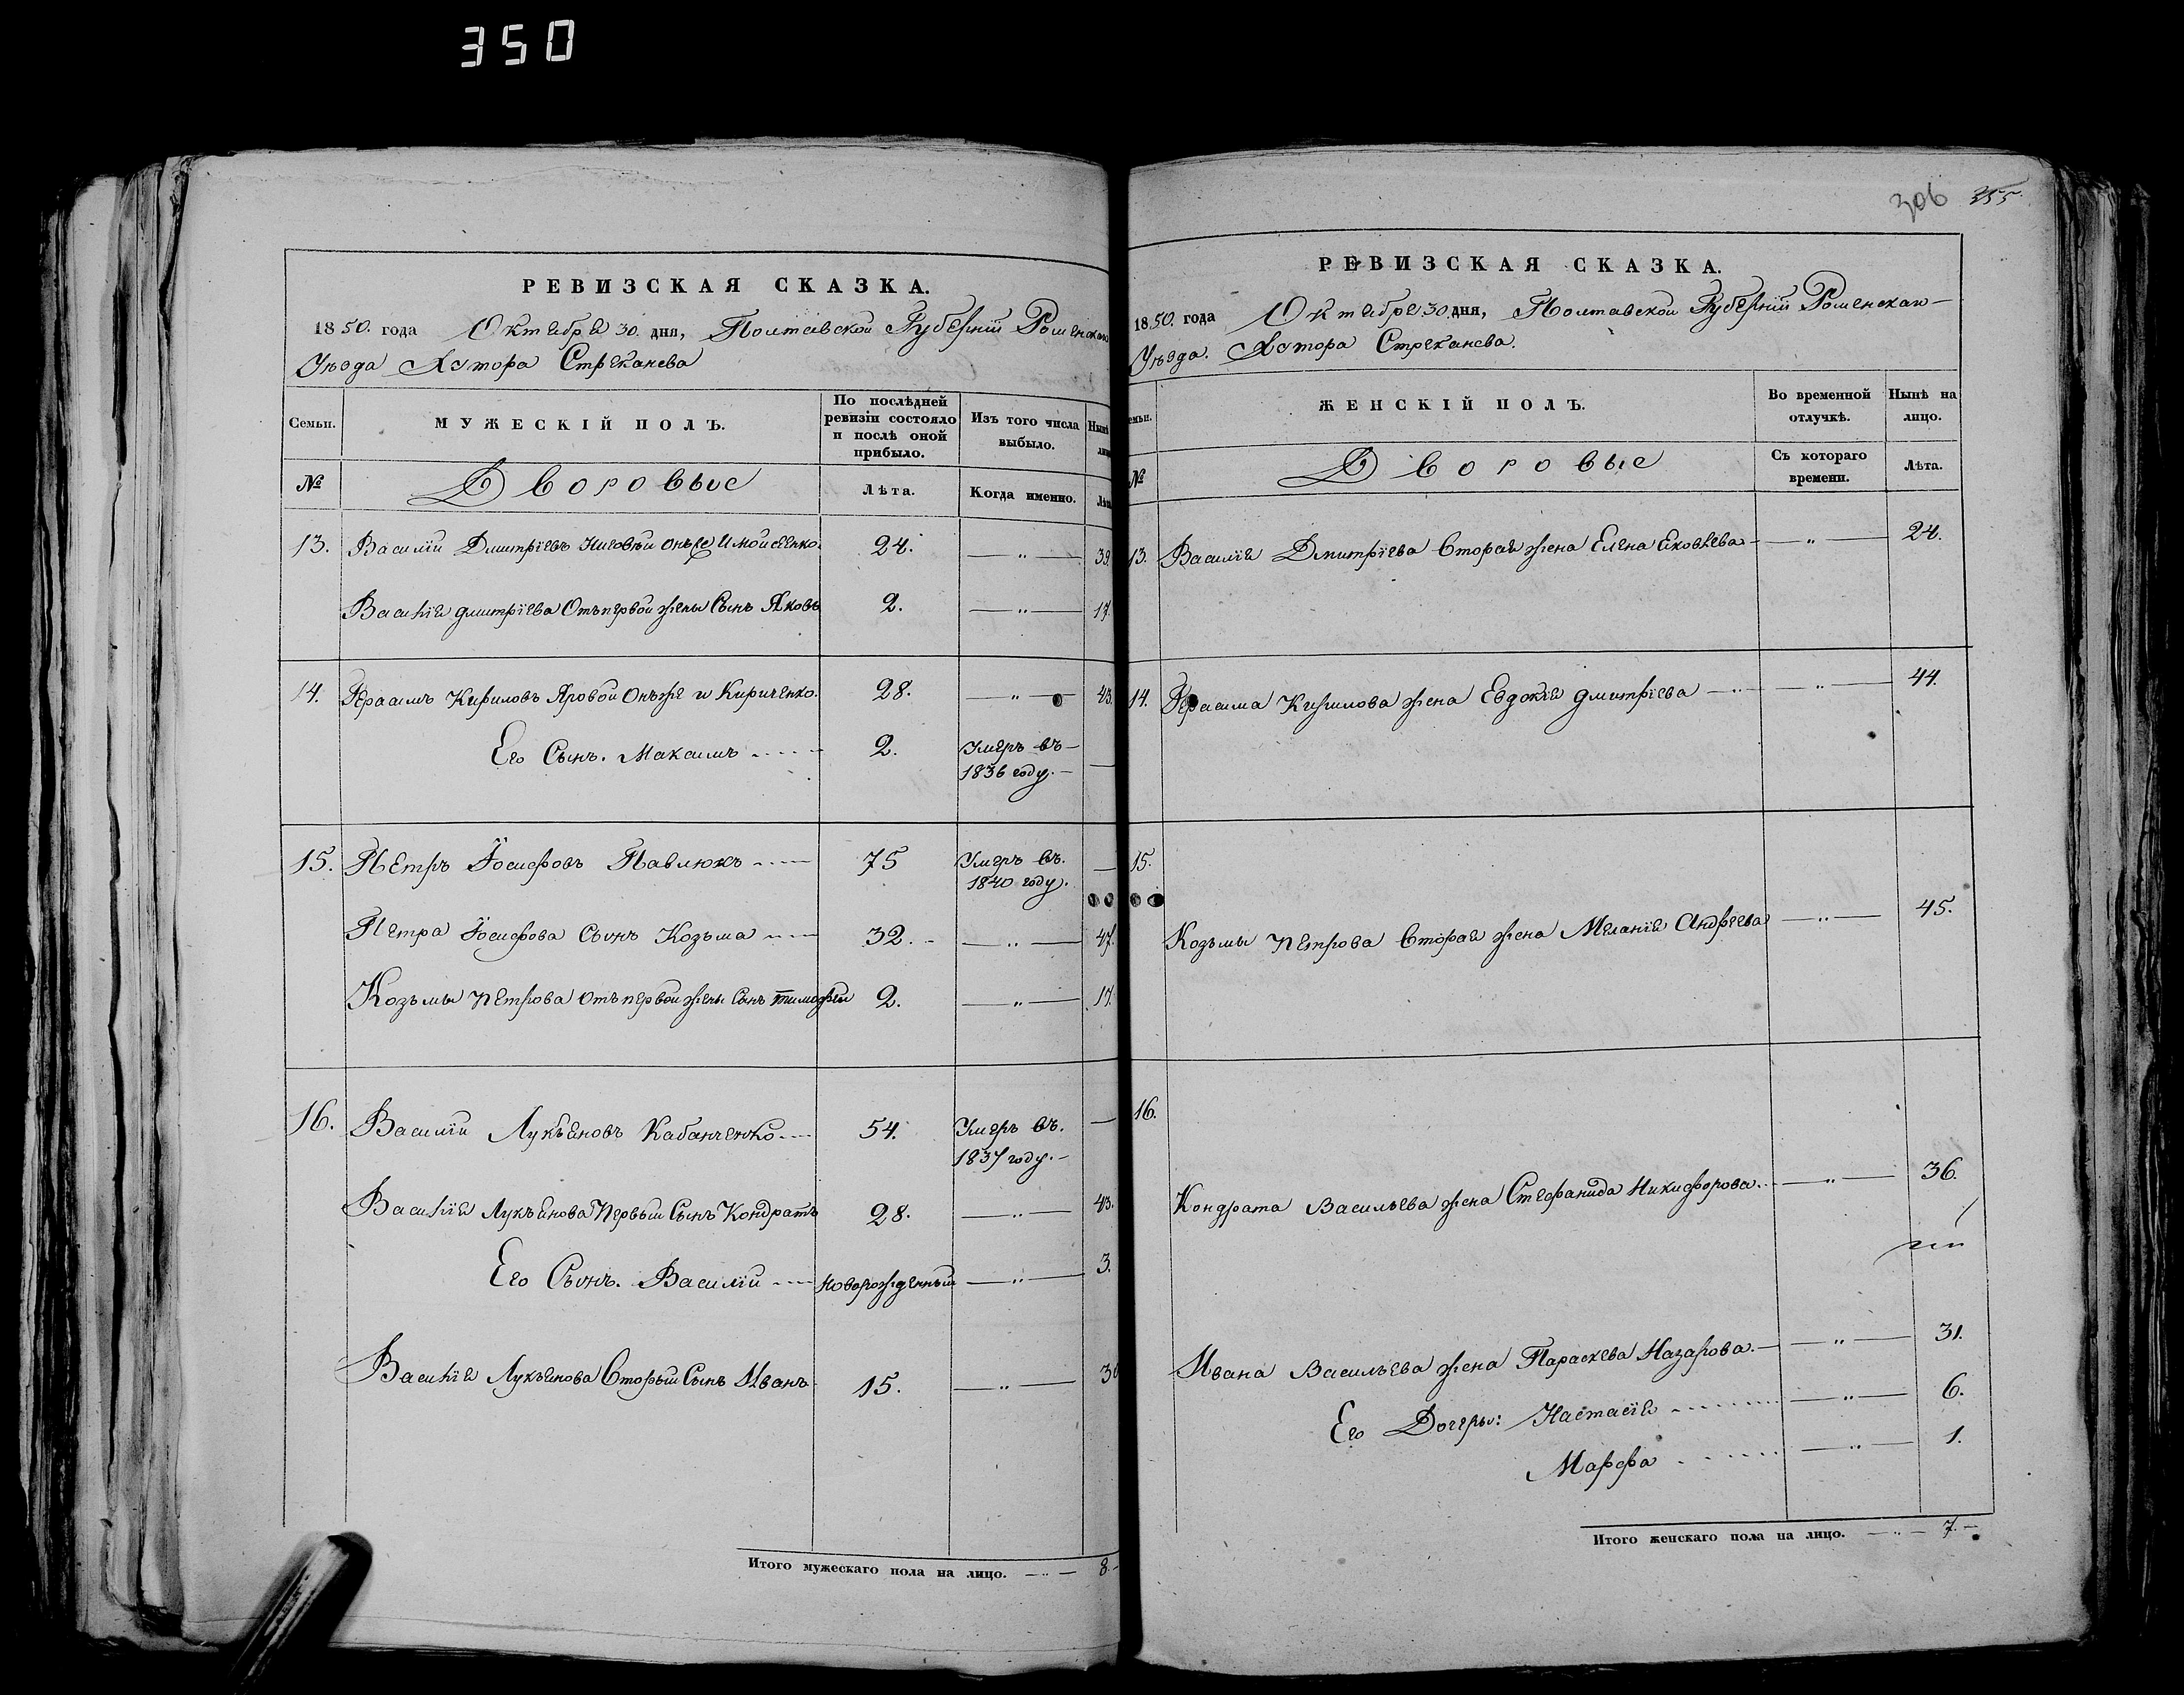 350
РЕВИЗСКАЯ СКАЗКА.
1850. года Октября 30. дня, Полтавской Губернїи Роменскаго
Уѣзда Хутора Стреканева
Семьи.
МУЖЕСКІЙ ПОЛЪ.
По послѣдней ревизіи состояло и послѣ оной прибыло.
Изъ того числа выбыло.
Нынѣ
№
Дворовые
Лѣта.
Когда именно.
13. Василїй Дмитрїевъ онъже Имойсеенко. 24. — „ — 39.
Василїя дмитрїева Отъ первой жены Сынъ Яковъ 2. — „ — 17.
14. Герасимъ Кириловъ Яровой Онъже и Кириченко. 28. — „ — 43.
Его Сынъ. Максимъ 2. Умеръ въ —
1836 году. —
15. Петръ Іосифовъ Павлюкъ 75 Умеръ въ. —
1840 году.
Петра Іосифова Сынъ Козьма 32. — „ — 47.
Козьмы петрова Отъ первой жены Сынъ тимофей 2. — „ — 17.
16. Василїй Лукьяновъ Кабанченко 54. Умеръ въ. —
1837 году. —
Василїя Лукьянова Первый Сынъ Кондратъ 28. — „ — 43.
Его Сынъ. Василїй Новорожденный — „ — 3.
Василїя Лукьянова Вторый Сынъ Иванъ 15. — „ — 30
Итого мужескаго пола на лицо. — „ — 8. —
306 355
РЕВИЗСКАЯ СКАЗКА.
1850. года Октября 30 дня, Полтавской Губернїи Роменскаго —
Уѣзда. Хутора Стреканева.
ЖЕНСКІЙ ПОЛЪ.
Во временной отлучкѣ.
Нынѣ на лицо.
№
Дворовые
Съ котораго времени.
Лѣта.
13. Василїя Дмитрїева Вторая жена Елена Яковлева — „ — 24.
14. Герасима Кирилова жена Евдокїя дмитрїева — „ — 44.
15.
Козьмы петрова Вторая жена Меланїя Андреева — „ — 45.
16.
Кондрата Васильева жена Стефанида Никифорова. — „ — 36.
Ивана Васильева жена Параскева Назарова. — „ — 31.
Его Дочеры: Настасїя — „ — 6.
Марфа — „ — 1.
Итого женскаго пола на лицо. — „ — 7. —